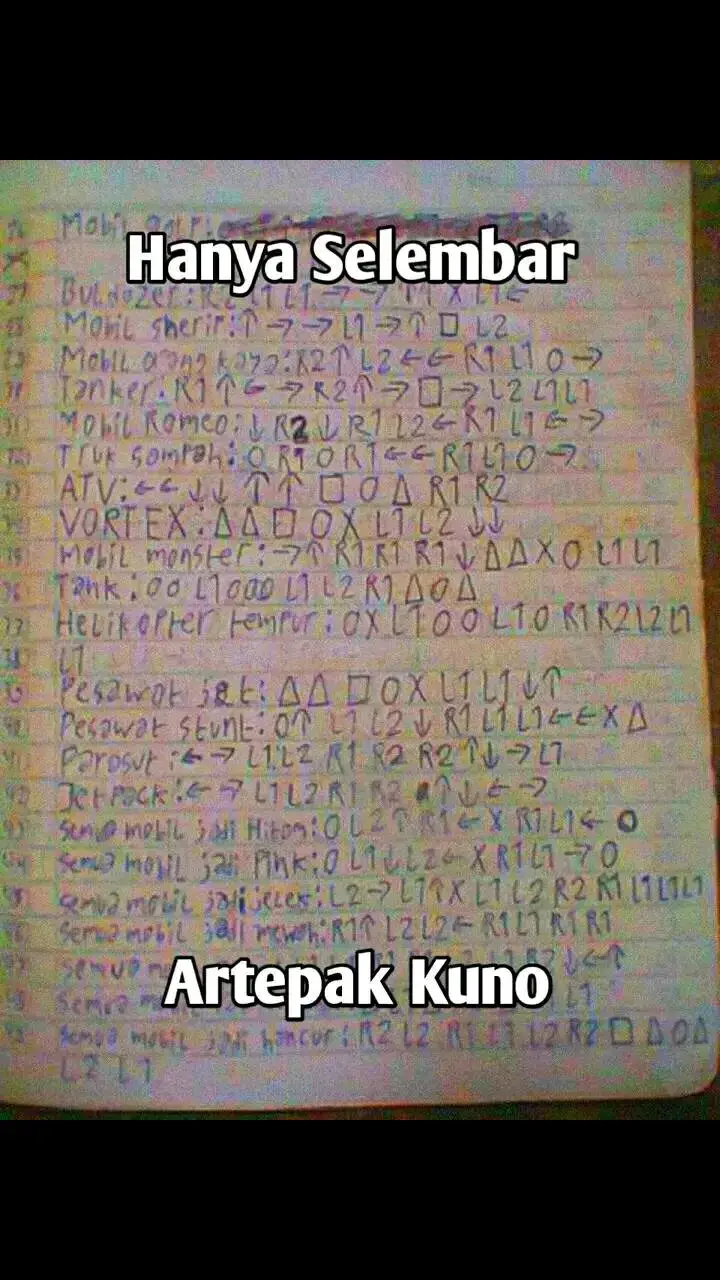 Mobil
Hanya Selembar
27 Buldozer: R2 L1 L1 → → L1 X L1 ←
Mobil sherir: ↑ → → L1 → ↑ □ L2
Mobil orang kaya: R2 ↑ L2 ← ← R1 L1 O →
Tanker: R1 ↑ ← → R2 ↑ → □ → L2 L1 L1
Mobil Romeo: ↓ R2 ↓ R1 L2 ← R1 L1 ← →
Truk sampah: O R1 O R1 ← ← R1 L1 O →
ATV: ← ← ↓ ↓ ↑ ↑ □ O Δ R1 R2
VORTEX: Δ Δ □ O X L1 L2 ↓ ↓
Mobil monster: → ↑ R1 R1 R1 ↓ Δ Δ X O L1 L1
36 Tank: O O L1 O O O L1 L2 R1 Δ O Δ
37 Helikopter tempur: O X L1 O O L1 O R1 R2 L2 L1
38 L1
Pesawat jet: Δ Δ □ O X L1 L1 ↓ ↑
40 Pesawat stunt: O ↑ L1 L2 ↓ R1 L1 L1 ← ← X Δ
41 Parasut: ← → L1 L2 R1 R2 R2 ↑ ↓ → L1
42 Jetpack: ← → L1 L2 R1 R2 ↑ ↓ ← →
43 semua mobil jadi Hitam: O L2 ↑ R1 ← X R1 L1 ← O
44 semua mobil jadi Pink: O L1 ↓ L2 ← X R1 L1 → O
45 semua mobil jadi jelek: L2 → L1 ↑ X L1 L2 R2 R1 L1 L1 L1
46 semua mobil jadi mewah: R1 ↑ L2 L2 ← R1 L1 R1 R1
47 semua R2 ↓ ← ↑
Artepak Kuno
48 semua L1
semua mobil jadi hancur: R2 L2 R1 L1 L2 R2 □ Δ O Δ
L2 L1